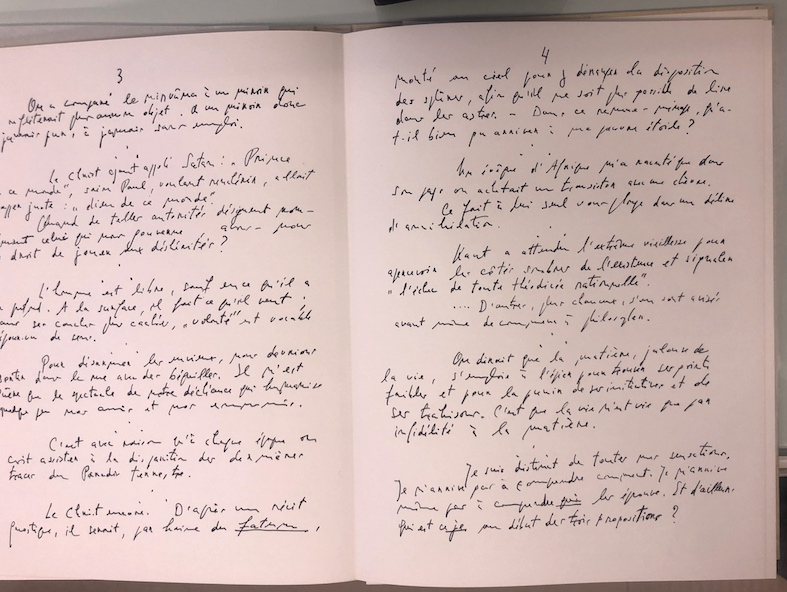 3
On a comparé le nirvâna à un miroir qui
refléterait plus aucun objet. A un miroir donc
jamais pur, à jamais sans emploi.
Le Christ ayant appelé Satan : „Prince
ce monde", saint Paul, voulant renchérir, allait
frapper juste : „dieu de ce monde".
Quand de telles autorités désignent nom-
mément celui qui nous gouverne, avons-nous
droit de jouer aux déshérités ?
L'homme est libre, sauf en ce qu'il a
profond. A la surface, il fait ce qu'il veut ;
dans ses couches plus cachées, „volonté" est vocable
dépourvu de sens.
Pour désarmer les envieux, nous devrions
sortir dans la rue avec des béquilles. Il n'est
guère que le spectacle de notre déchéance qui humanise
quelque peu nos amis et nos ennemis.
C'est avec raison qu'à chaque époque on
croit assister à la disparition des dernières
traces du Paradis terrestre.
Le Christ encore. D'après un récit
gnostique, il serait, par haine du fatum,
4
monté au ciel pour y déranger la disposition
des sphères, afin qu'il ne soit plus possible de lire
dans les astres. – Dans ce remue-ménage, qu'a-
t-il bien pu arriver à ma pauvre étoile ?
Un évêque d'Afrique m'a raconté que dans
son pays on achetait un transistor avec une chèvre.
Ce fait à lui seul vous plonge dans un délire
d'annihilation.
Kant a attendu l'extrême vieillesse pour
apercevoir les côtés sombres de l'existence et signaler
"l'échec de toute théodicée rationnelle".
.... D'autres, plus chanceux, s'en sont avisés
avant même de commencer à philosopher.
On dirait que la matière, jalouse de
la vie, s'emploie à l'épier pour trouver ses points
faibles et pour la punir de ses initiatives et de
ses trahisons. C'est que la vie n'est vie que par
infidélité à la matière.
Je suis distinct de toutes mes sensations.
Je n'arrive pas à comprendre comment. Je n'arrive
même pas à comprendre qui les éprouve. Et d'ailleurs
qui est ce je au début des trois propositions ?